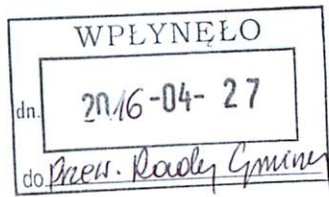 WPŁYNĘŁO
dn. 2016-04-27
do Przew. Rady Gminy